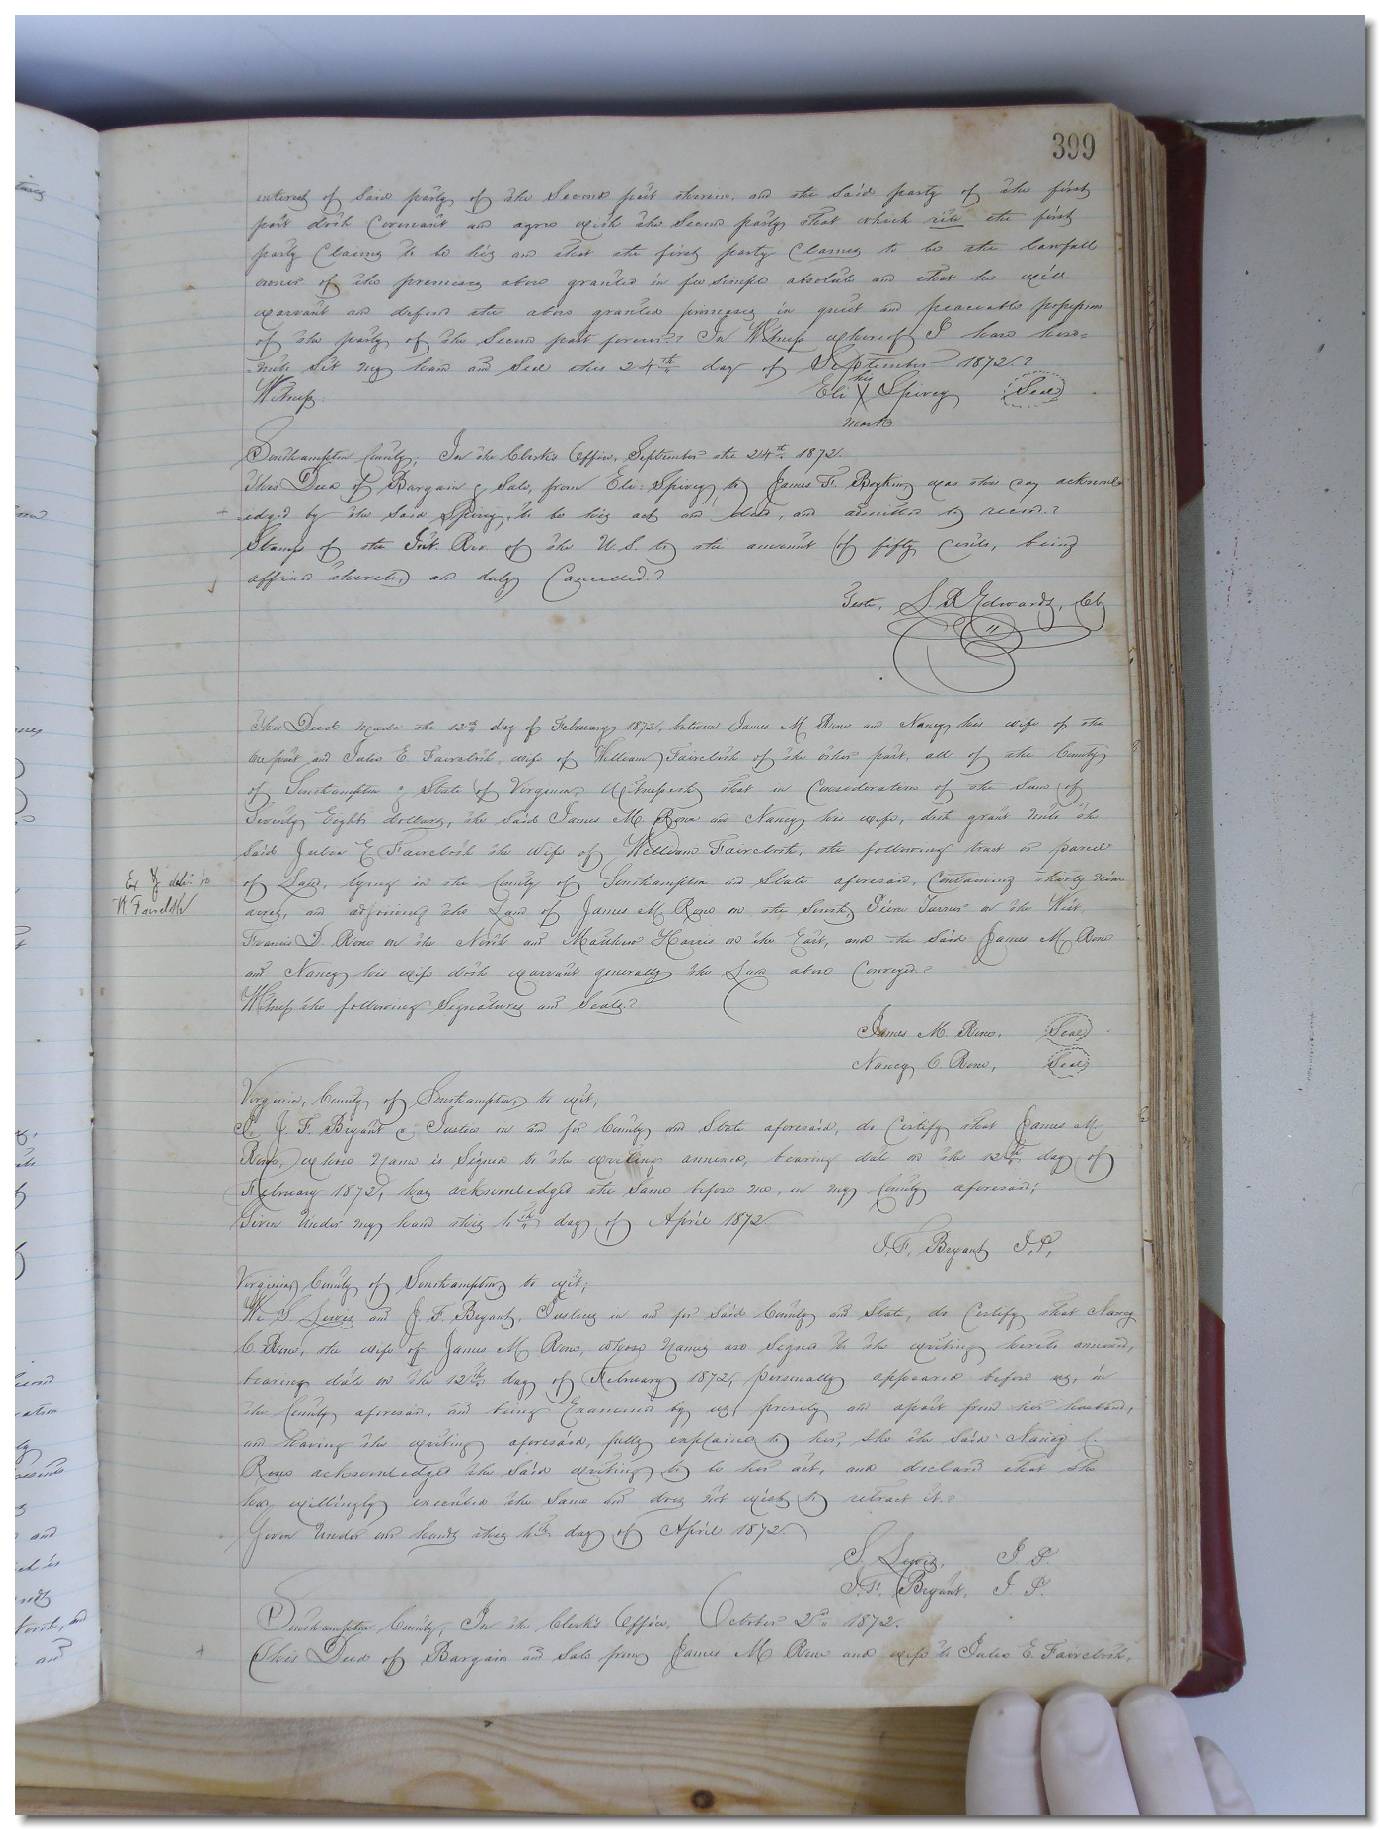 399
interest of said party of the Second part therein, and the said party of the first
part doth Covenant and agree with the Second party that which the first
party Claims to be his and that the first party Claimes to be the lawfull
owner of the premises above granted in fee simple absolute and that he will
warrant and defend the above granted premises in quiet and peaceable possession
of the party of the Second part forever. In Witness whereof I have here=
unto Set my hand and Seal this 24th day of September 1872.
Witness. Eli his X Spivey Seal
mark
Southampton County, In the Clerk's Office, September the 24th 1872.
This Deed of Bargain & Sale, from Eli Spivey to James F. Boykin was this day acknowl
=edged by the said Spivey, to be his act and deed, and admitted to record.
Stamps of the Int. Rev. of the U. S. to the amount of fifty Cents, being
affixed thereto, and duly Cancelled.
Teste, L. R. Edwards, Clk
This Deed made the 12th day of February 1872, between James M. Rose and Nancy his wife of the
one part and Julia E. Faircloth, wife of William Faircloth of the other part, all of the County
of Southampton & State of Virginia, Witnesseth that in Consideration of the Sum of
Seventy Eight dollars, the said James M. Rose and Nancy his wife, doth grant unto the
Said Julia E. Faircloth the wife of William Faircloth, the following tract or parcel
of Land, lying in the County of Southampton and State aforesaid, Containing thirty nine
acres, and adjoining the Land of James M. Rose on the South, Turner on the West,
Francis D. Rose on the North and Matthew Harris on the East, and the said James M. Rose
and Nancy his wife doth warrant generally the Land above Conveyed.
Witness the following Signatures and Seals.
Ex & deld to
W Faircloth
James M. Rose, Seal
Nancy C. Rose, Seal
Virginia, County of Southampton, to wit,
I, J. F. Bryant a Justice in and for County and State aforesaid, do Certify that James M.
Rose, whose name is Signed to the writing annexed, bearing date on the 12th day of
February 1872, has acknowledged the Same before me, in my County aforesaid;
Given Under my hand this day of April 1872.
J. F. Bryant J. P.
Virginia, County of Southampton, to wit;
We S. Lewis and J. F. Bryant, Justices in and for Said County and State, do Certify that Nancy
C. Rose, the wife of James M. Rose, whose names are Signed to the writing hereto annexed,
bearing date on the 12th day of February 1872, personally appeared before us, in
the County aforesaid, and being Examined by us, privily and apart from her husband,
and having the writing aforesaid, fully explained to her, She the Said Nancy C.
Rose acknowledged the Said writing to be her act, and declared that She
has willingly executed the Same and does not wish to retract it.
Given Under our hands this day of April 1872.
S. Lewis, J. P.
J. F. Bryant, J. P.
Southampton County, In the Clerk's Office, October 2nd 1872.
This Deed of Bargain and Sale from James M. Rose and wife to Julia E. Faircloth,